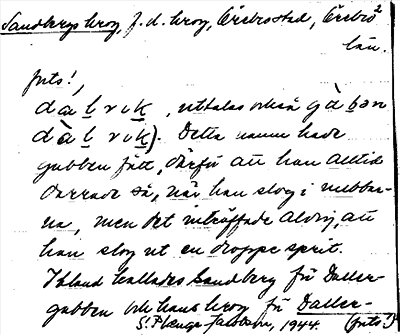 Sandbergs krog, f.d. krog, Örebro stad, Örebro 2
län.
forts!,
dalrvk, uttalas också gàbən
dàlrvk). Detta namn hade
gubben fått, därför att han alltid
darrade så, när han slog i nubbar-
na, men det inträffade aldrig, att
han slog ut en droppe sprit.
Ibland kallades Sandberg för Daller-
gubben och hans krog för Daller-
1944 (forts!)